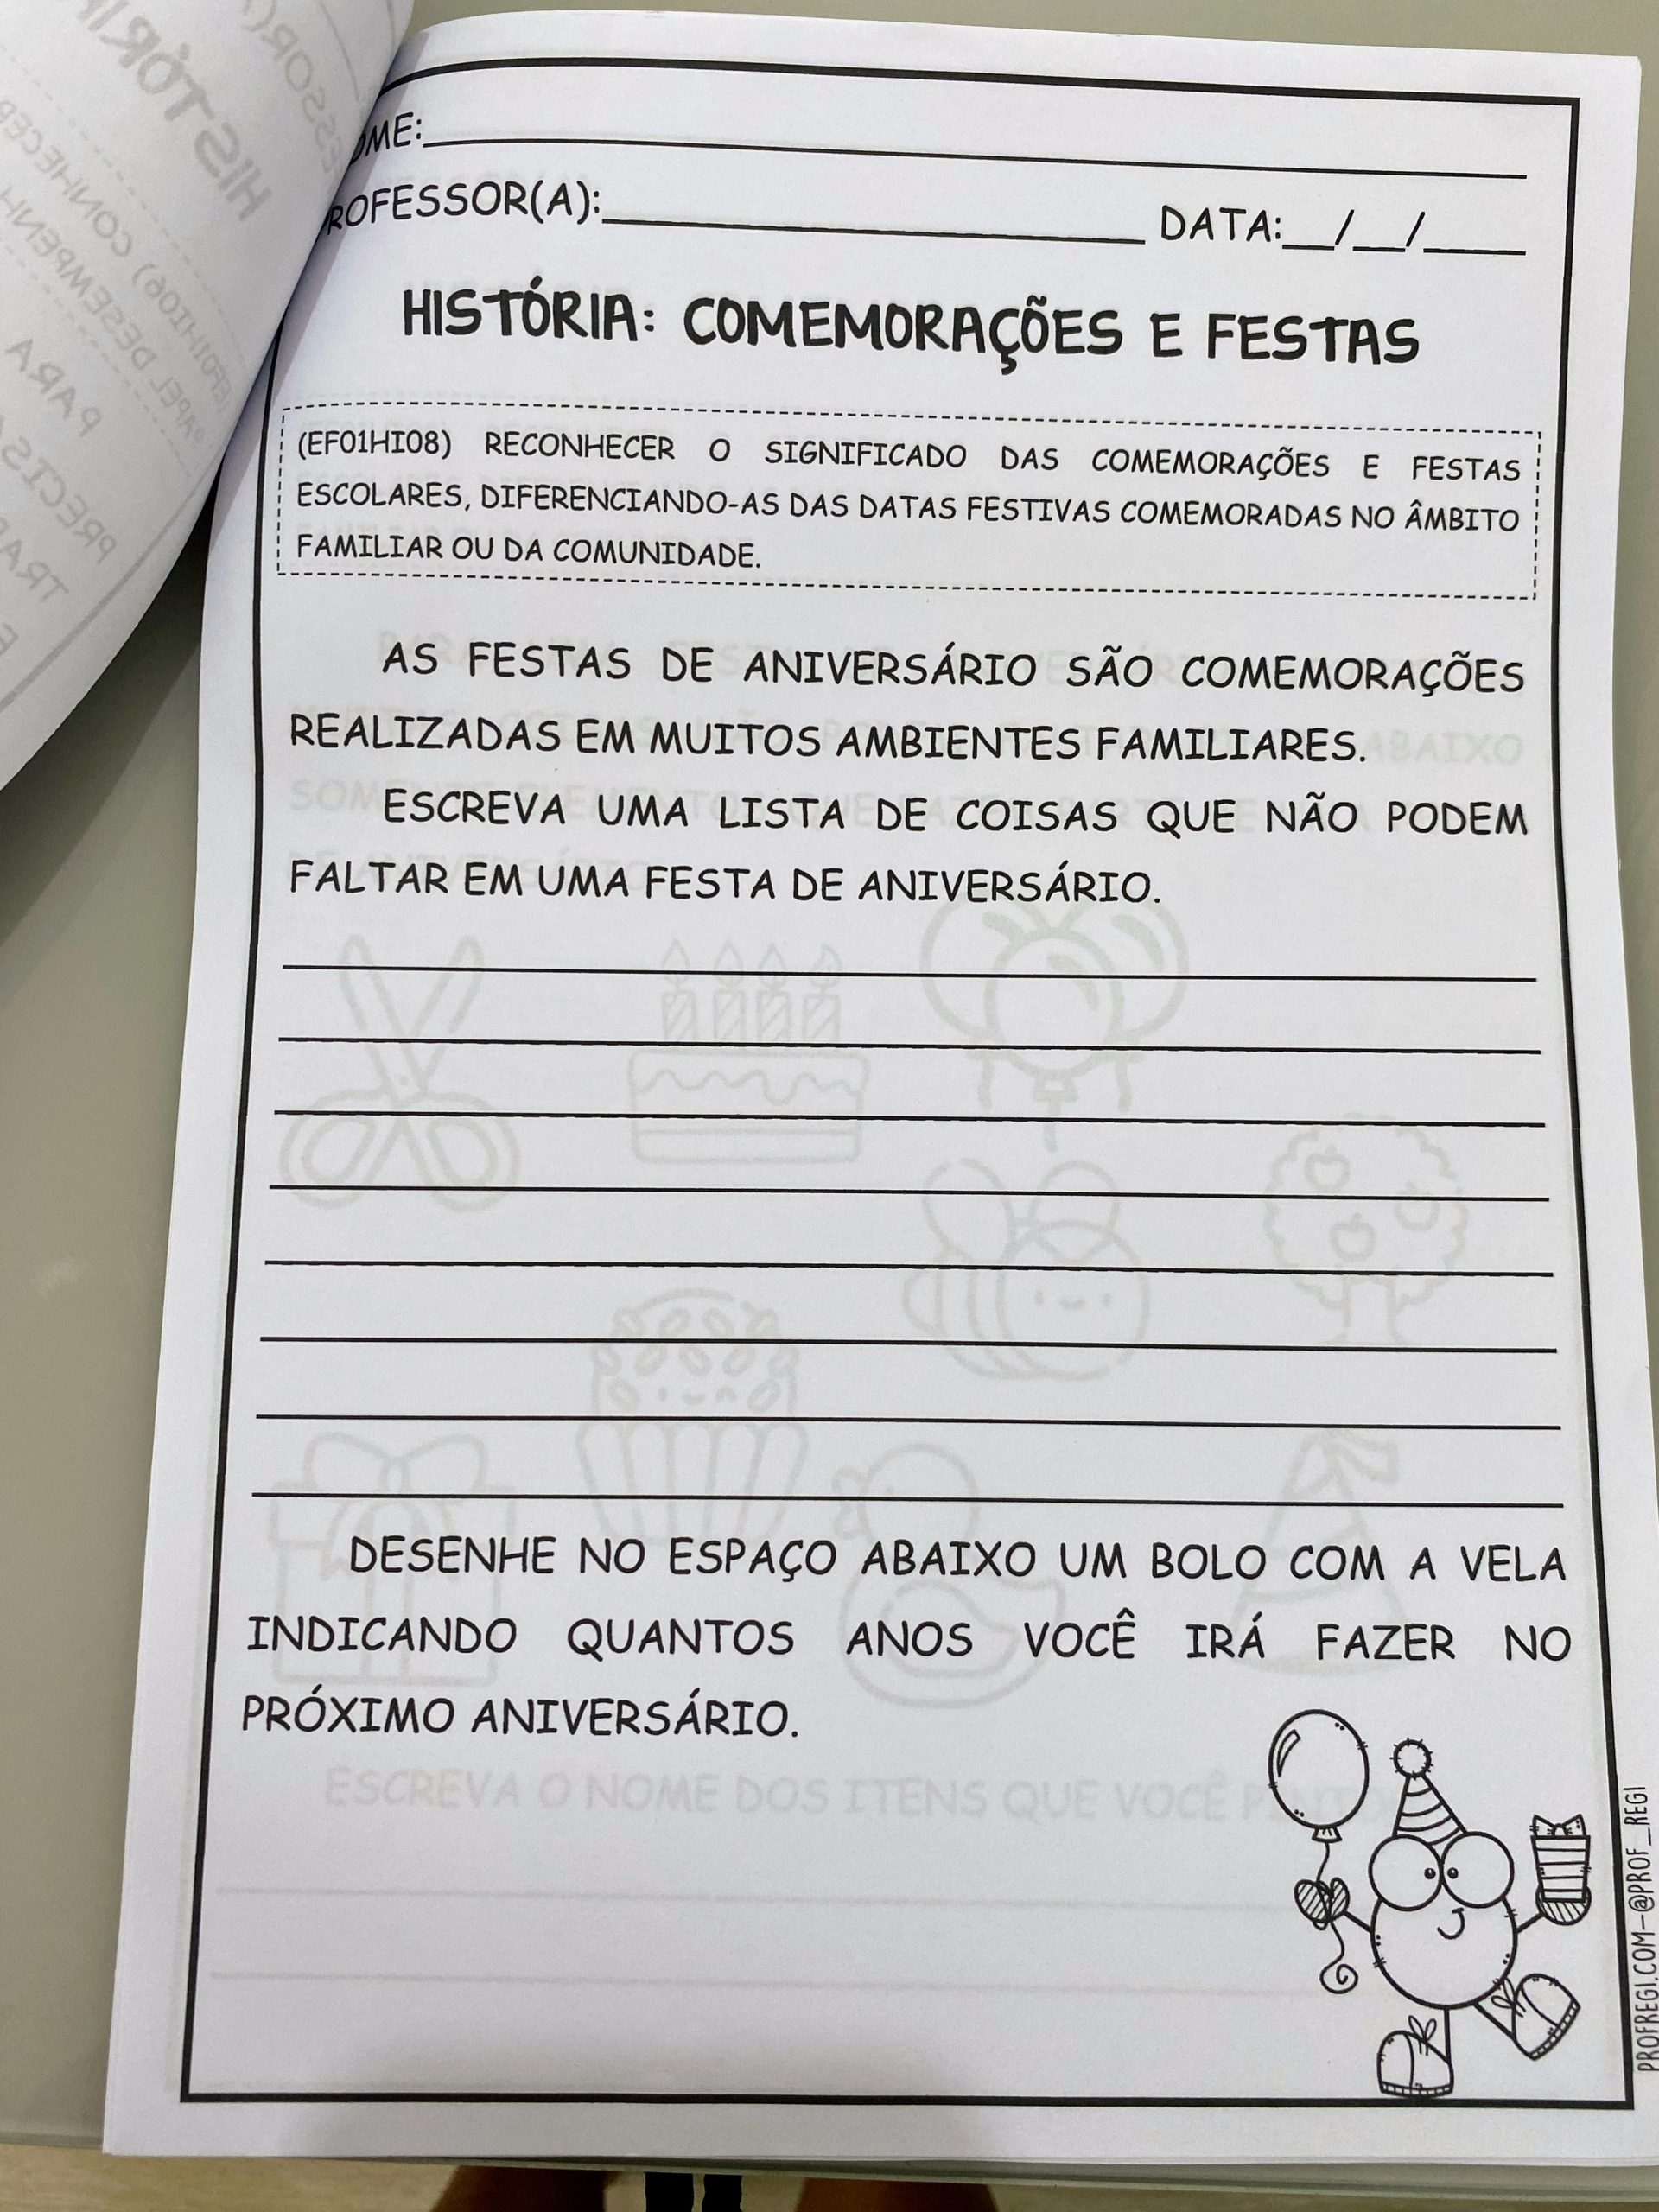 NOME:
PROFESSOR(A): DATA:__/__/____
HISTÓRIA: COMEMORAÇÕES E FESTAS
(EF01HI08) RECONHECER O SIGNIFICADO DAS COMEMORAÇÕES E FESTAS
ESCOLARES, DIFERENCIANDO-AS DAS DATAS FESTIVAS COMEMORADAS NO ÂMBITO
FAMILIAR OU DA COMUNIDADE.
AS FESTAS DE ANIVERSÁRIO SÃO COMEMORAÇÕES
REALIZADAS EM MUITOS AMBIENTES FAMILIARES.
ESCREVA UMA LISTA DE COISAS QUE NÃO PODEM
FALTAR EM UMA FESTA DE ANIVERSÁRIO.
DESENHE NO ESPAÇO ABAIXO UM BOLO COM A VELA
INDICANDO QUANTOS ANOS VOCÊ IRÁ FAZER NO
PRÓXIMO ANIVERSÁRIO.
ESCREVA O NOME DOS ITENS QUE VOCÊ
PROFREGI.COM-@PROF_REGI